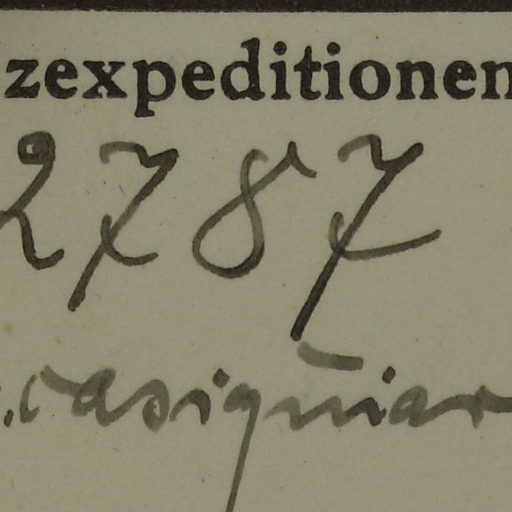 zexpeditionen
2787
.casiquiar